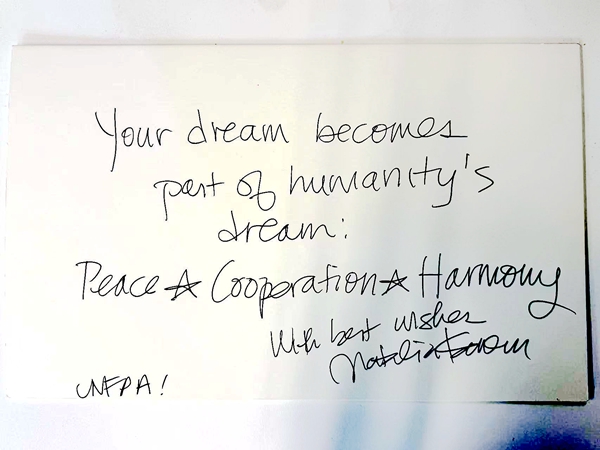 Your dream becomes
part of humanity's
dream:
Peace ☆ Cooperation ☆ Harmony
With best wishes
Natalia
UNFPA!